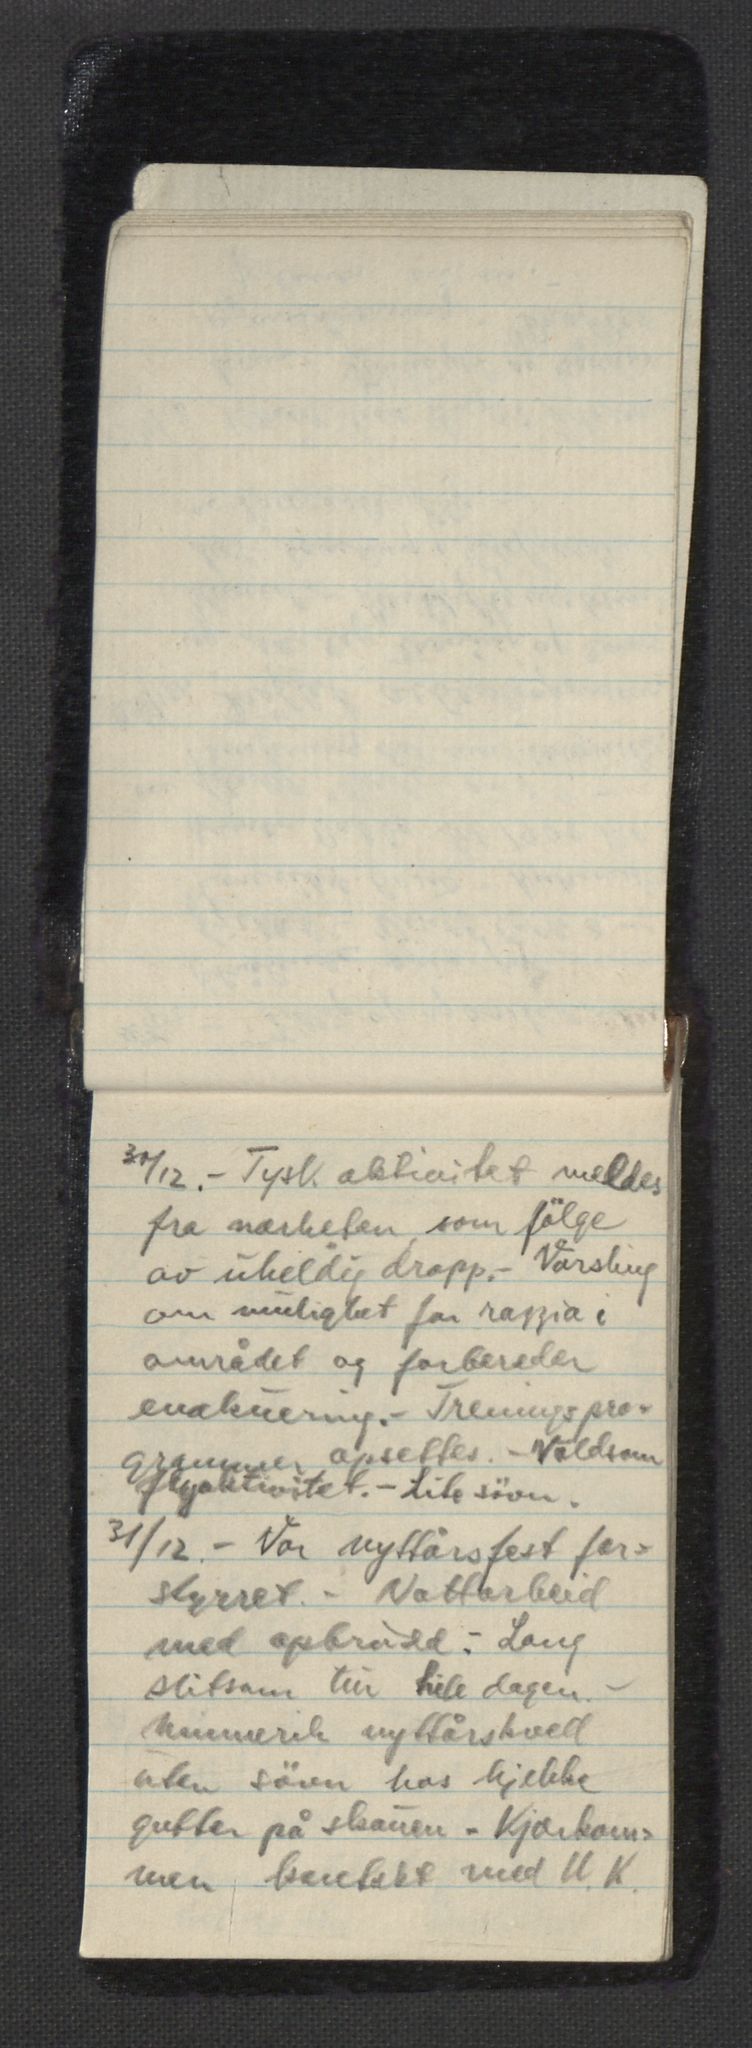 30/12. - Tysk aktivitet meldes
fra nærheten som følge
av uheldig dropp. - Varsling
om mulighet for razzia i
området og forbereder
evakuering. - Treningspro-
grammer opsettes. - Voldsom
flyaktivitet. - Lite søvn.
31/12. - Vor nyttårsfest for-
styrret. - Nattarbeid
med opbrudd. - Lang
slitsom tur hele dagen. -
nyttårskveld
uten søvn hos kjekke
gutter på skauen - Kjærkom-
men kontakt med U.K.